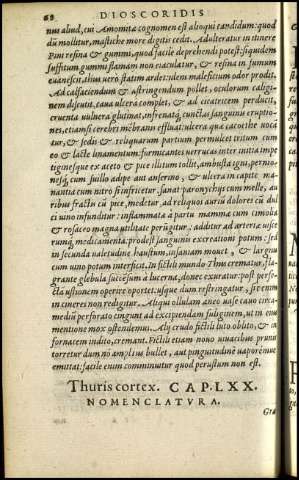 68 DIOSCORIDIS
nus aliud, cui Amomita cognomen est alioqui candidum: quod
dũ mollitur, mastiche more digitis cedit. Adulteratur in thinere
Pini resina & gummi, quod facile deprehendi potest: siquidem
suffitum gummi flamam non eiaculatur, & resina in fumum
euanescit, thus vero statim ardet: idem maleficium odor prodit.
Ad calfaciendum & astringendum pollet, oculorum caligi-
nem discutit, caua ulcera complet, & ad cicatricem perducit,
cruenta vulnera glutinat, infrenatq́; cunctas sanguinis eruptio-
nes, etiamsi cerebri mẽbrana effluat: ulcera quæ cacoëthe voca
tur, & sedis & reliquarum partium permulcet tritum cum
eo & lacte linamentum: formicantes verrucas inter initia impe
tiginesque ex aceto & pice illitum tollit, ambusta igni, pernio-
nesq́; cum suillo adipe aut anserino, & ulcera in capite ma-
nantia cum nitro si infricetur, sanat paronychijs cum melle, au
ribus fractis cũ pice, medetur, ad reliquos auriũ dolores cũ dul
ci uino infunditur: inflammatã à partu mamma cum cimolia
& rosaceo magna utilitate perũgitur: additur ad arteriæ uisce
rumq́; medicamenta. prodest sanguinis excreationi potum: sed
in secunda ualetudine haustum, insaniam mouet, & largius
cum uino potum interficit. In fictili mundo Thus crematur, fla-
grante glebula succẽsum à lucerna, donec exuratur: post perfe-
ctã ustionem operire oportet, usque dum restringatur, siue enim
in cineres non redigitur. Atqui ollulam æneo uase cauo circa-
medio perforato cingunt ad excipiendam fuliginem, ut in eius
mentione mox ostendemus. Alij crudo fictili luto oblito, & in
fornacem indito, cremant. Fictili etiam nouo uiuacibus prunis
torretur dum nõ amplius bullet, aut pinguitudinẽ uaporẽmue
emittat: facile enim comminuitur quod perustum non est.
Thuris cortex. CAP. LXX.
NOMENCLATVRA.
Græ